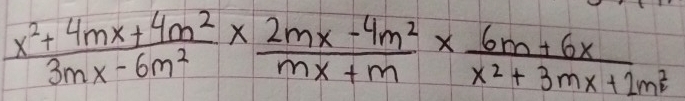 \frac{x^2+4mx+4m^2}{3mx-6m^2} \times \frac{2mx-4m^2}{mx+m} \times \frac{6m+6x}{x^2+3mx+2m^2}